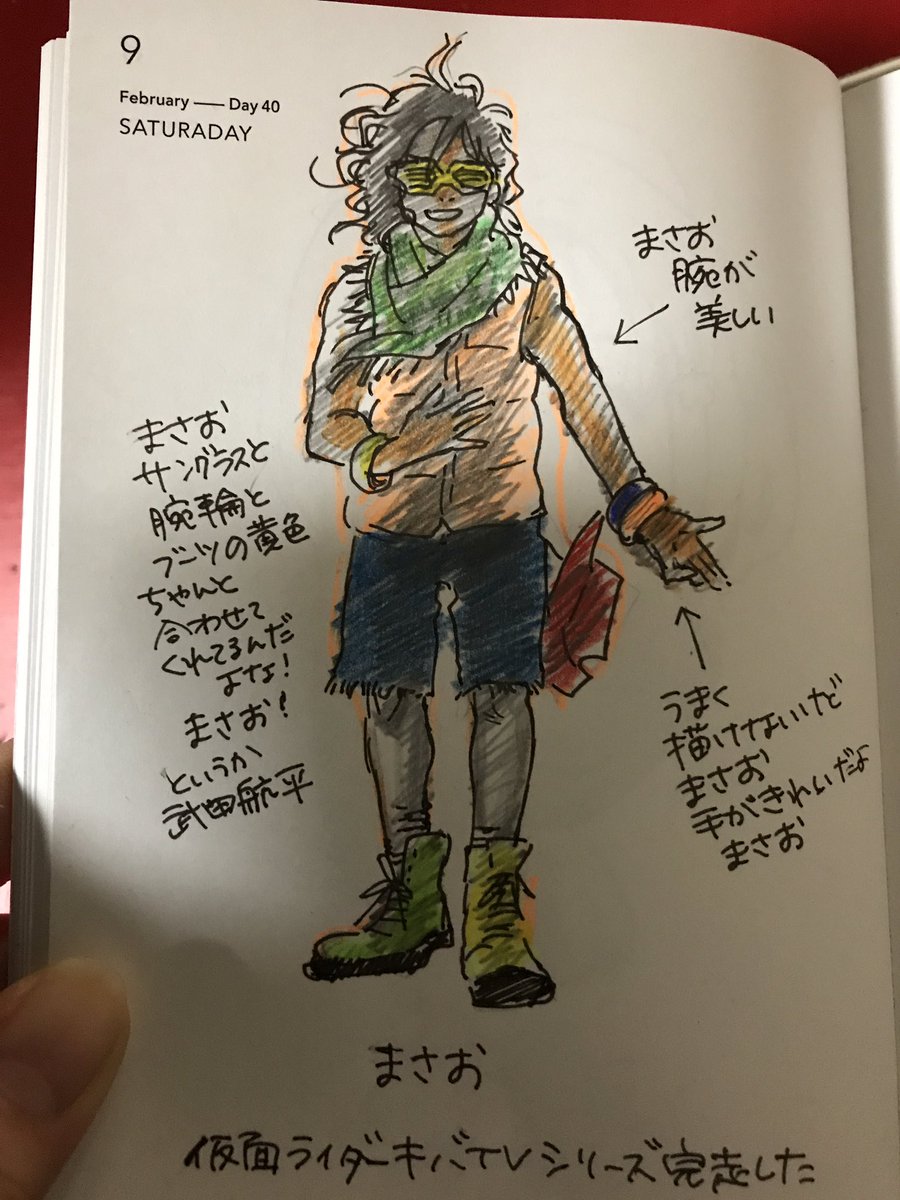 9
February — Day 40
SATURADAY
まさお
腕が
美しい
まさお
サングラスと
腕輪と
ブーツの黄色
ちゃんと
合わせて
くれてるんだ
よな!
まさお!
というか
武田航平
うまく
描けないけど
まさお
手がきれいだよ
まさお
まさお
仮面ライダーキバTVシリーズ完走した